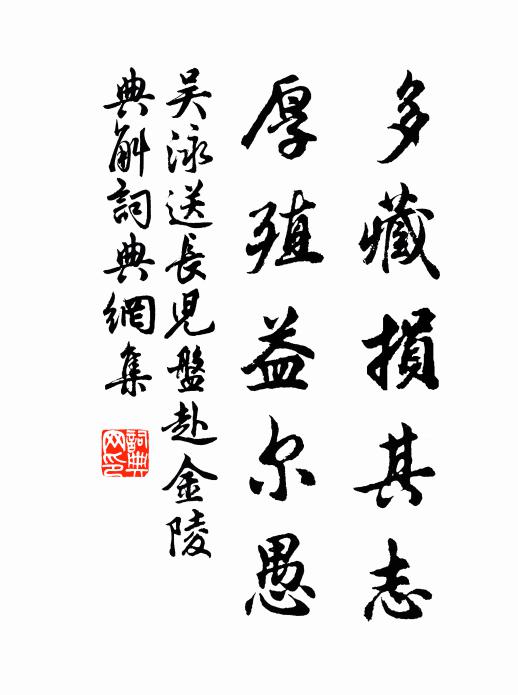 多藏損其志
厚殖益尔愚
吴泳送長児盤赴金陵
典解詞典網集
詞典網印